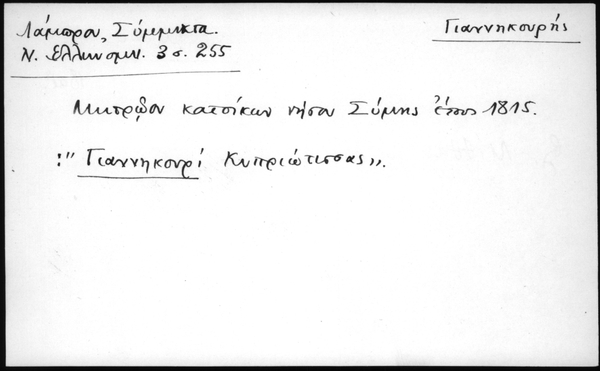 Λάμπρου, Σύμμικτα. Γιαννηκουρής
Ν. Ελληνομν. 3 σ. 255
Μητρῷον κατοίκων νήσου Σύμης ἔτους 1815.
:" Γιαννηκουρί Κυπριώτισσας".